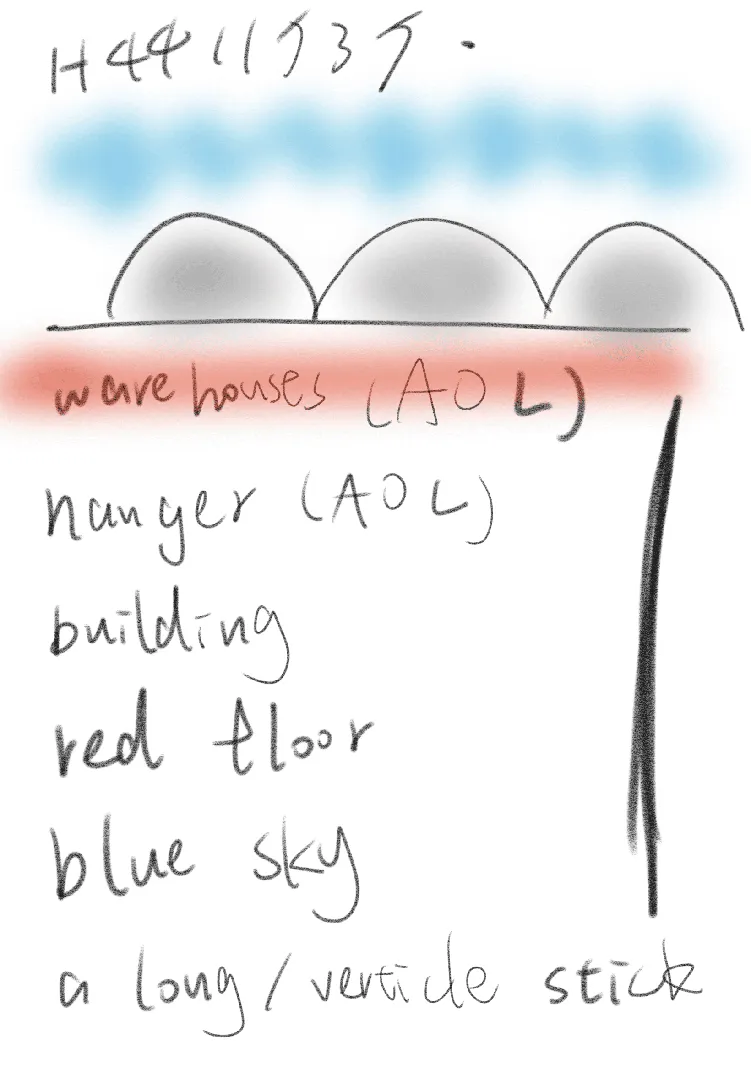 H4411737.
warehouses (AOL)
hanger (AOL)
building
red floor
blue sky
a long/verticle stick